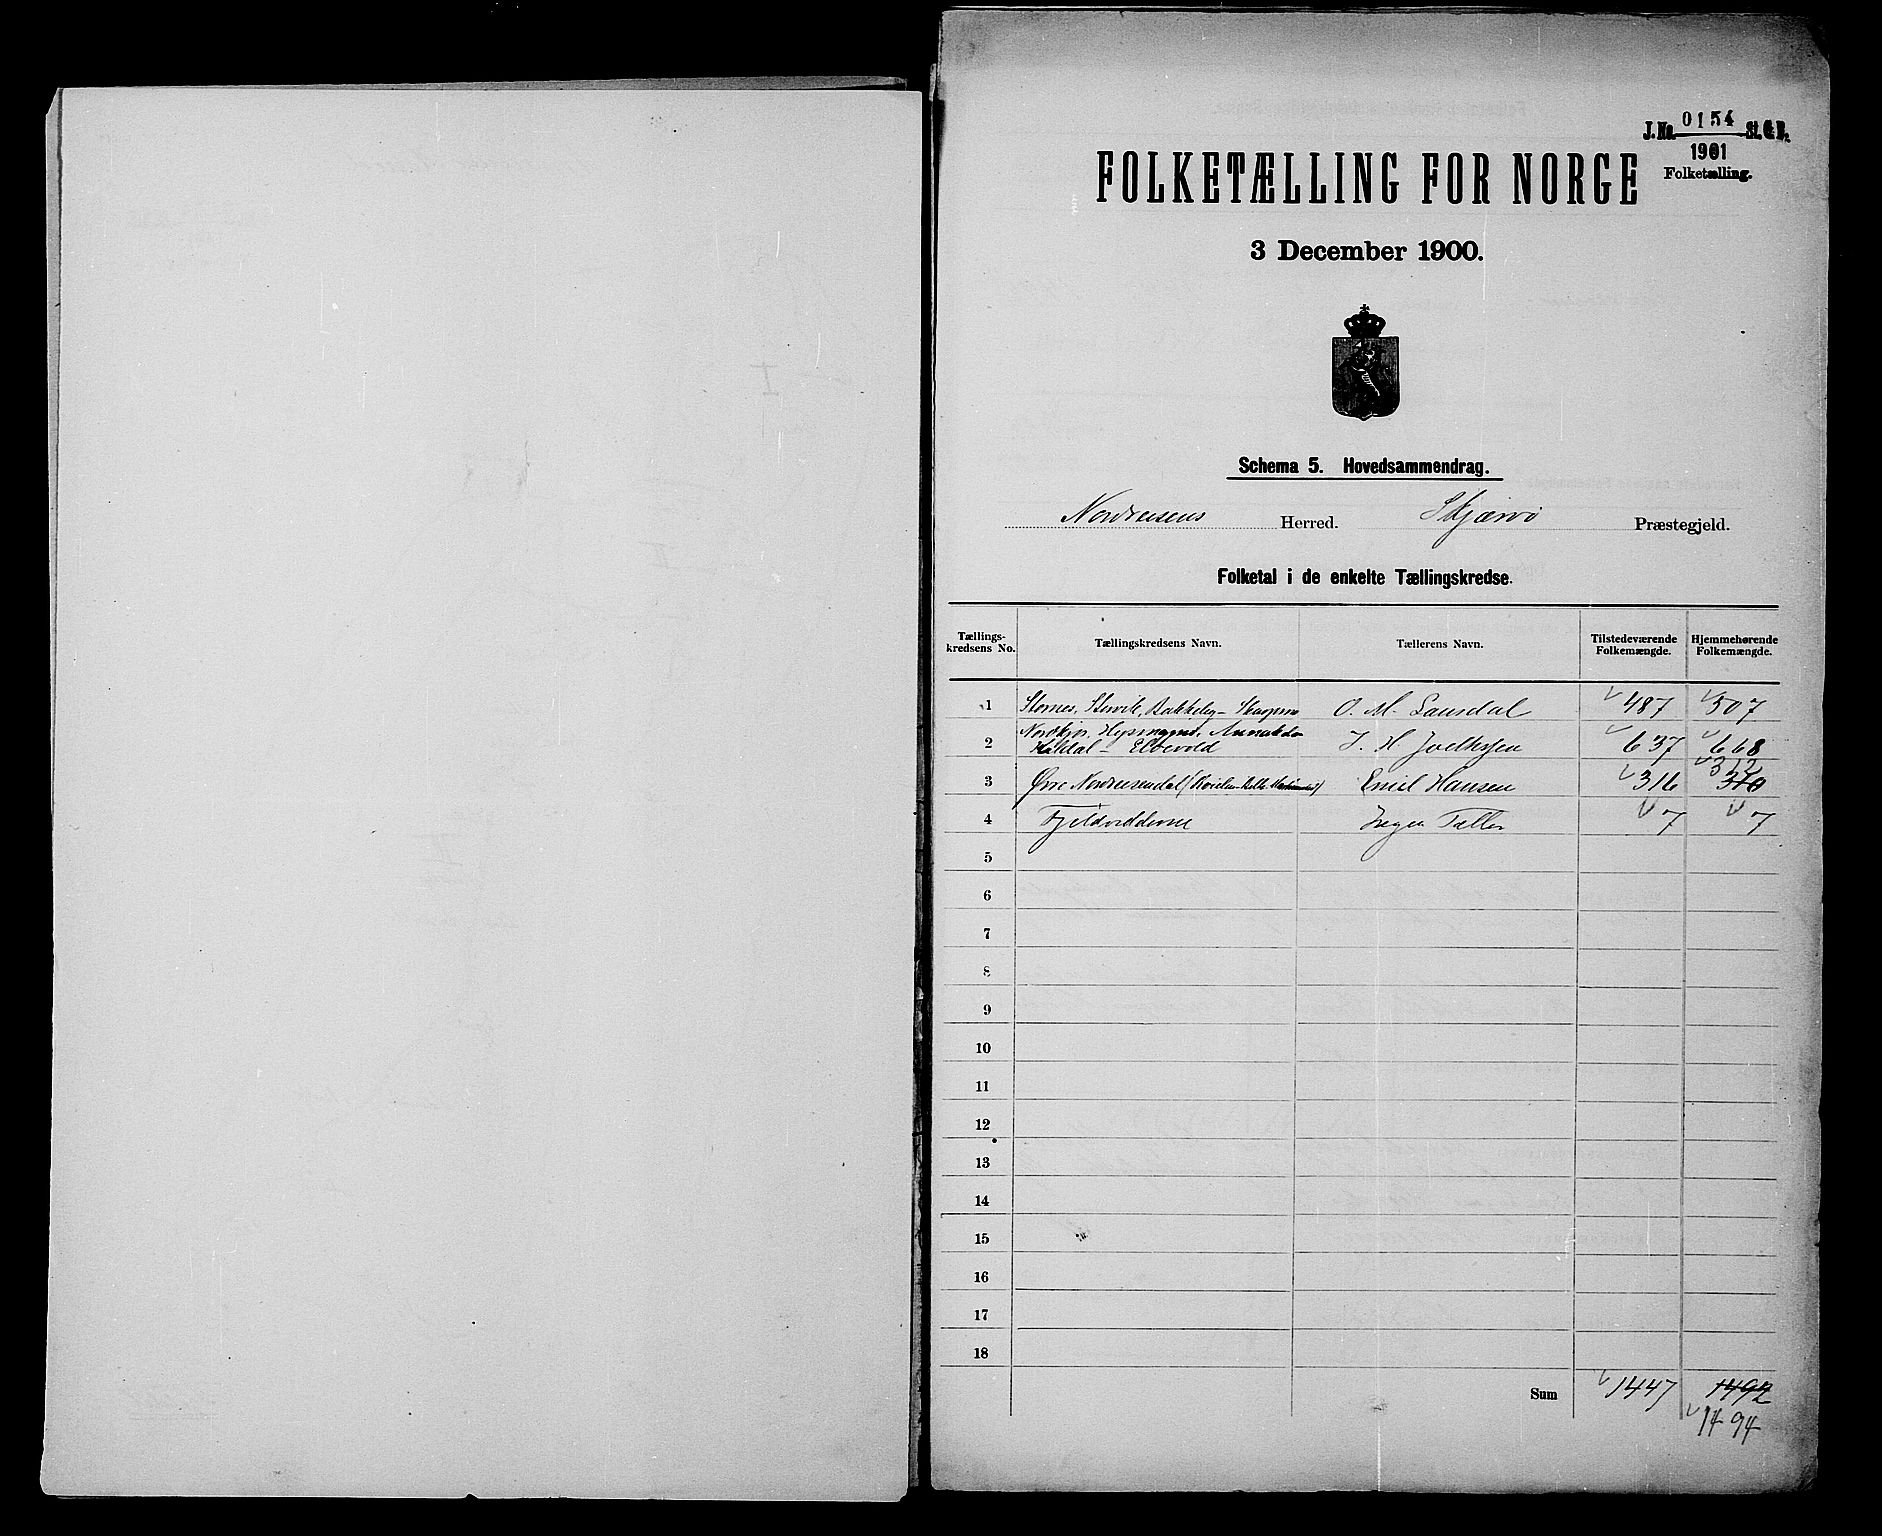 J.No. 0154 St. C. B.
1901
Folketælling.
FOLKETÆLLING FOR NORGE
3 December 1900.
Schema 5. Hovedsammendrag.
Nordreisens Herred. Skjærvø Præstegjeld.
Folketal i de enkelte Tællingskredse.
Tællings-kredsens No. Tællingskredsens Navn. Tællerens Navn. Tilstedeværende Folkemængde. Hjemmehørende Folkemængde.
1 Stornes, Storvik, Bakkeby- O. M. 487 507
2 J. H. 637 668
312
3 Øvre Nordreisendal Emil Hansen 316 310
4 Fjeldvidderne Ingen Tæller 7 7
5
6
7
8
9
10
11
12
13
14
15
16
17
18
Sum 1447 1492
1494